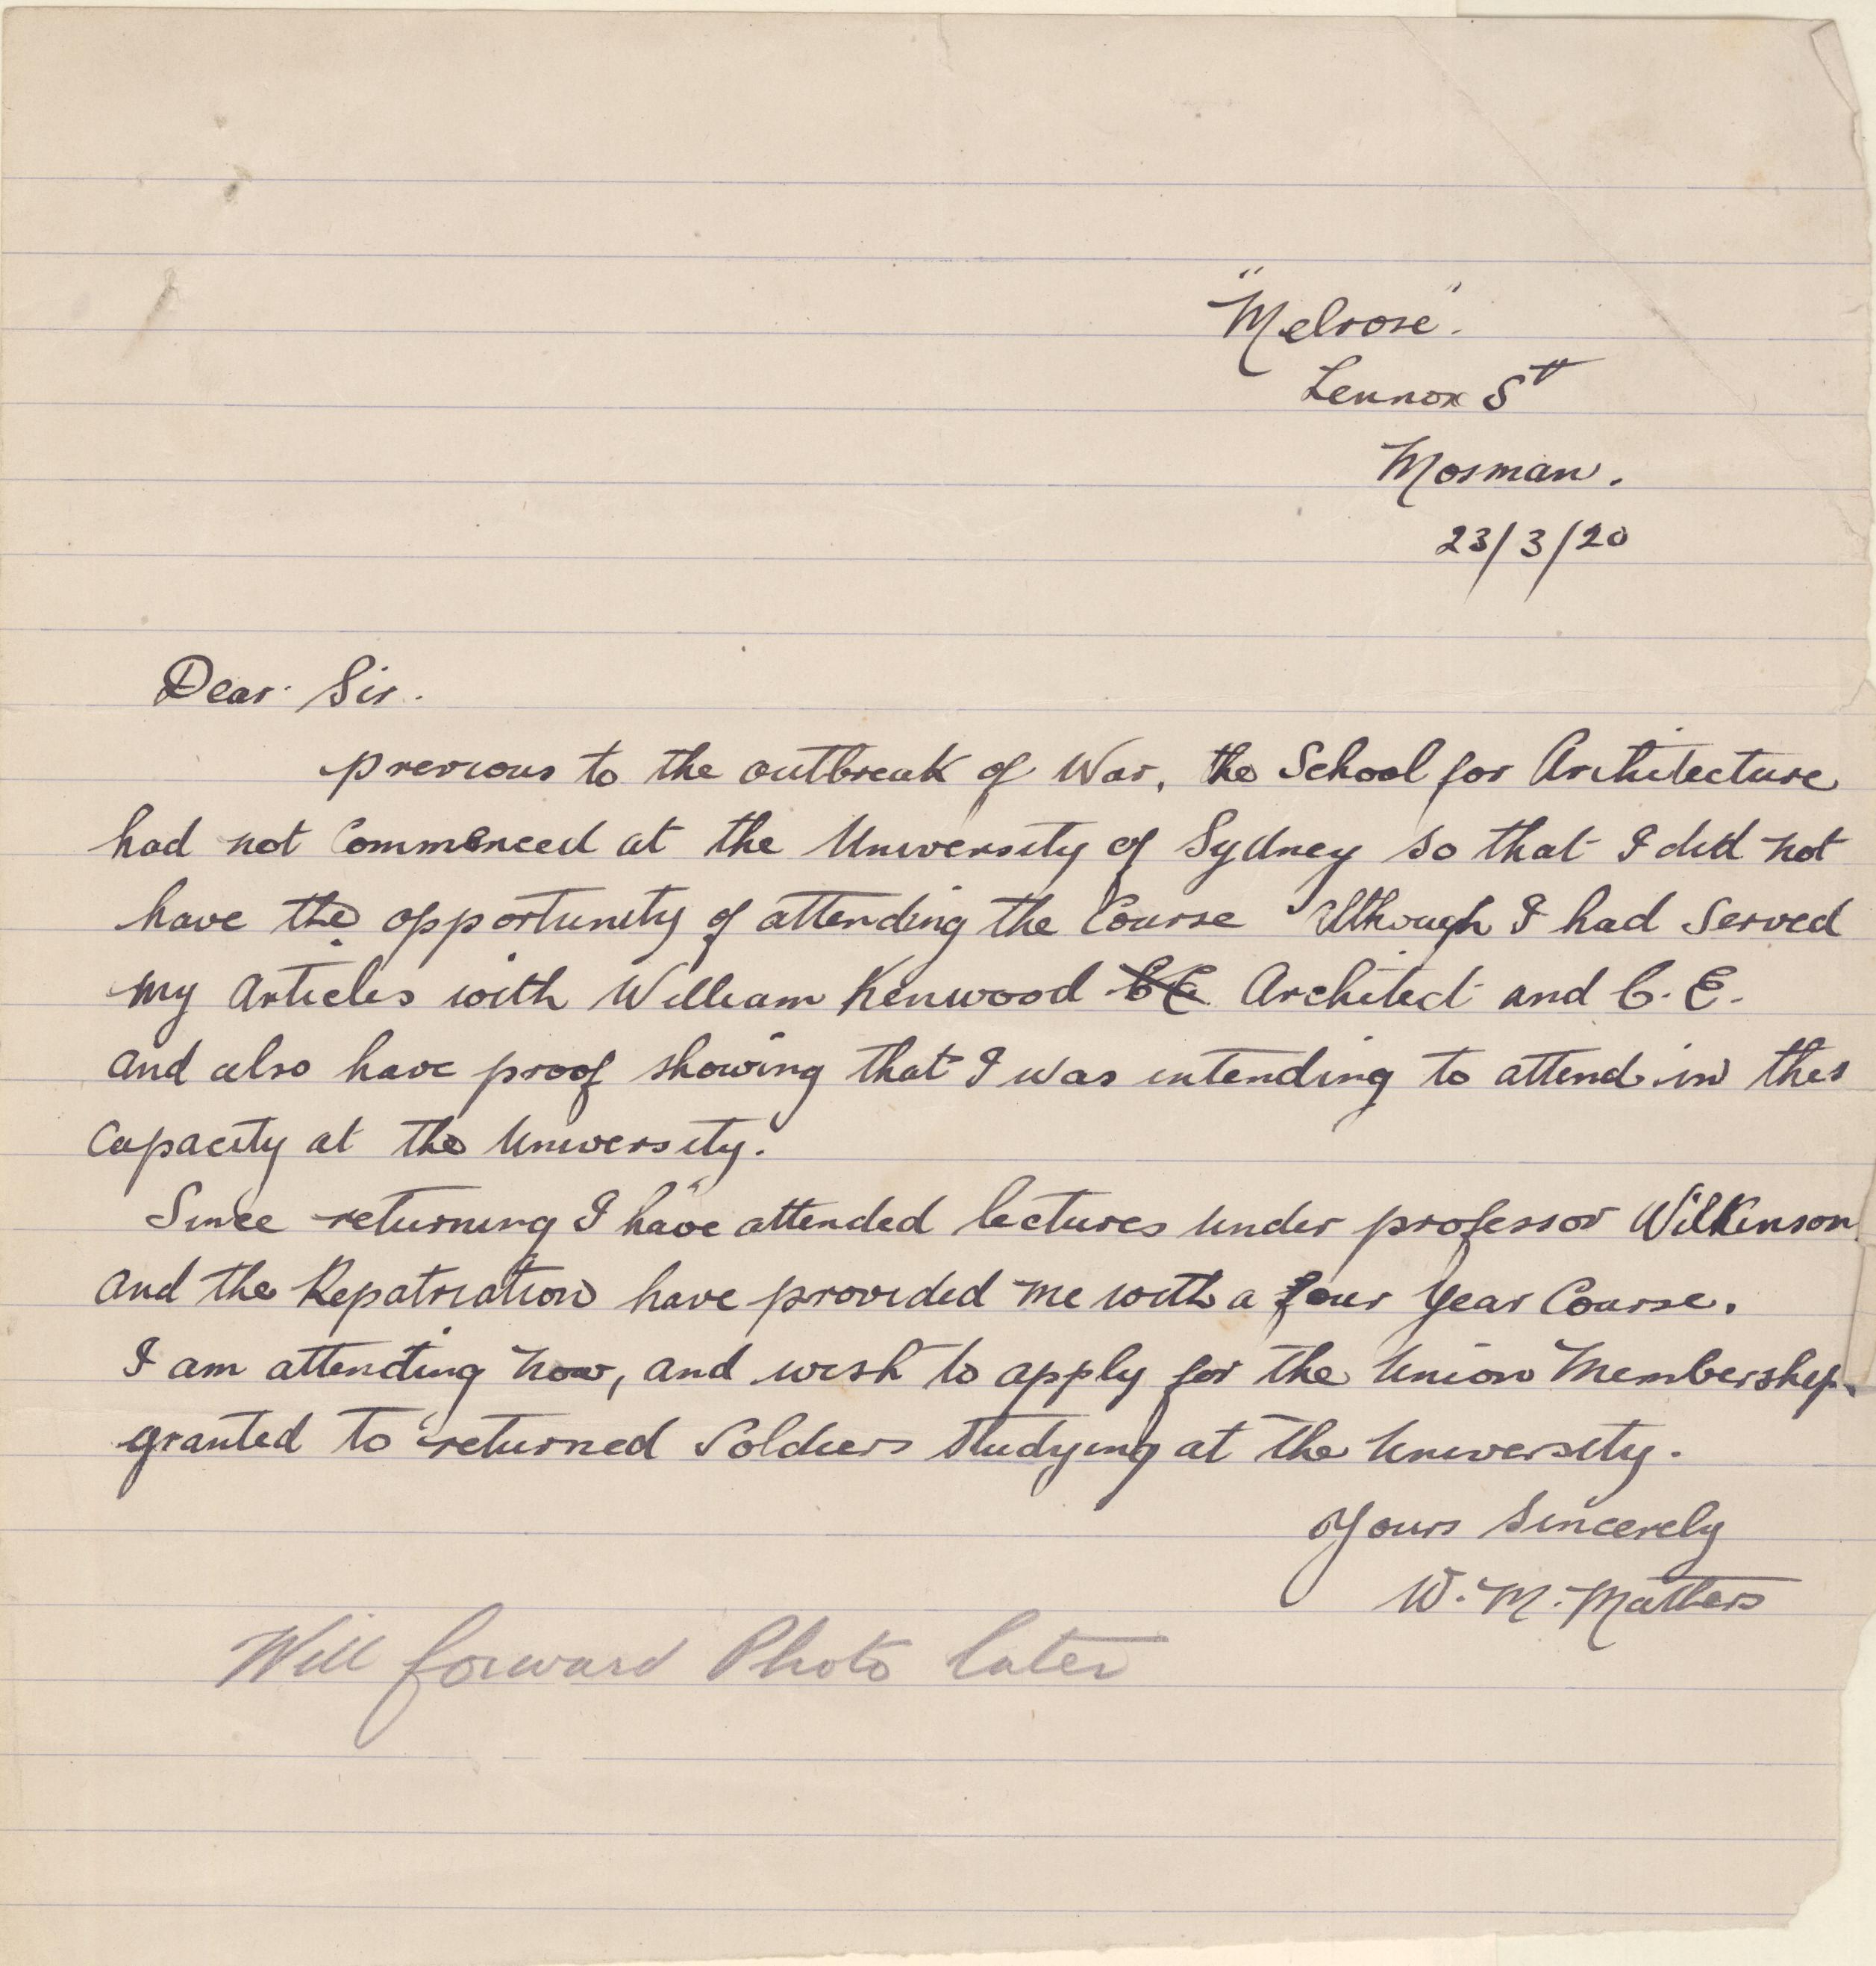 "Melrose".
Lennox St
Mosman.
23/3/20
Dear Sir.
previous to the outbreak of War, the School for Architecture
had not Commenced at the University of Sydney so that I did not
have the opportunity of attending the Course Although I had Served
my Articles with William Kenwood CE Architect and C. E.
and also have proof showing that I was intending to attend in this
Capacity at the University.
Since returning I have attended lectures under professor Wilkinson
and the Repatriation have provided me with a four Year Course.
I am attending now, and wish to apply for the Union Membership.
granted to returned Soldiers Studying at the University.
Yours Sincerely
W. M. Matters
Will forward Photo later